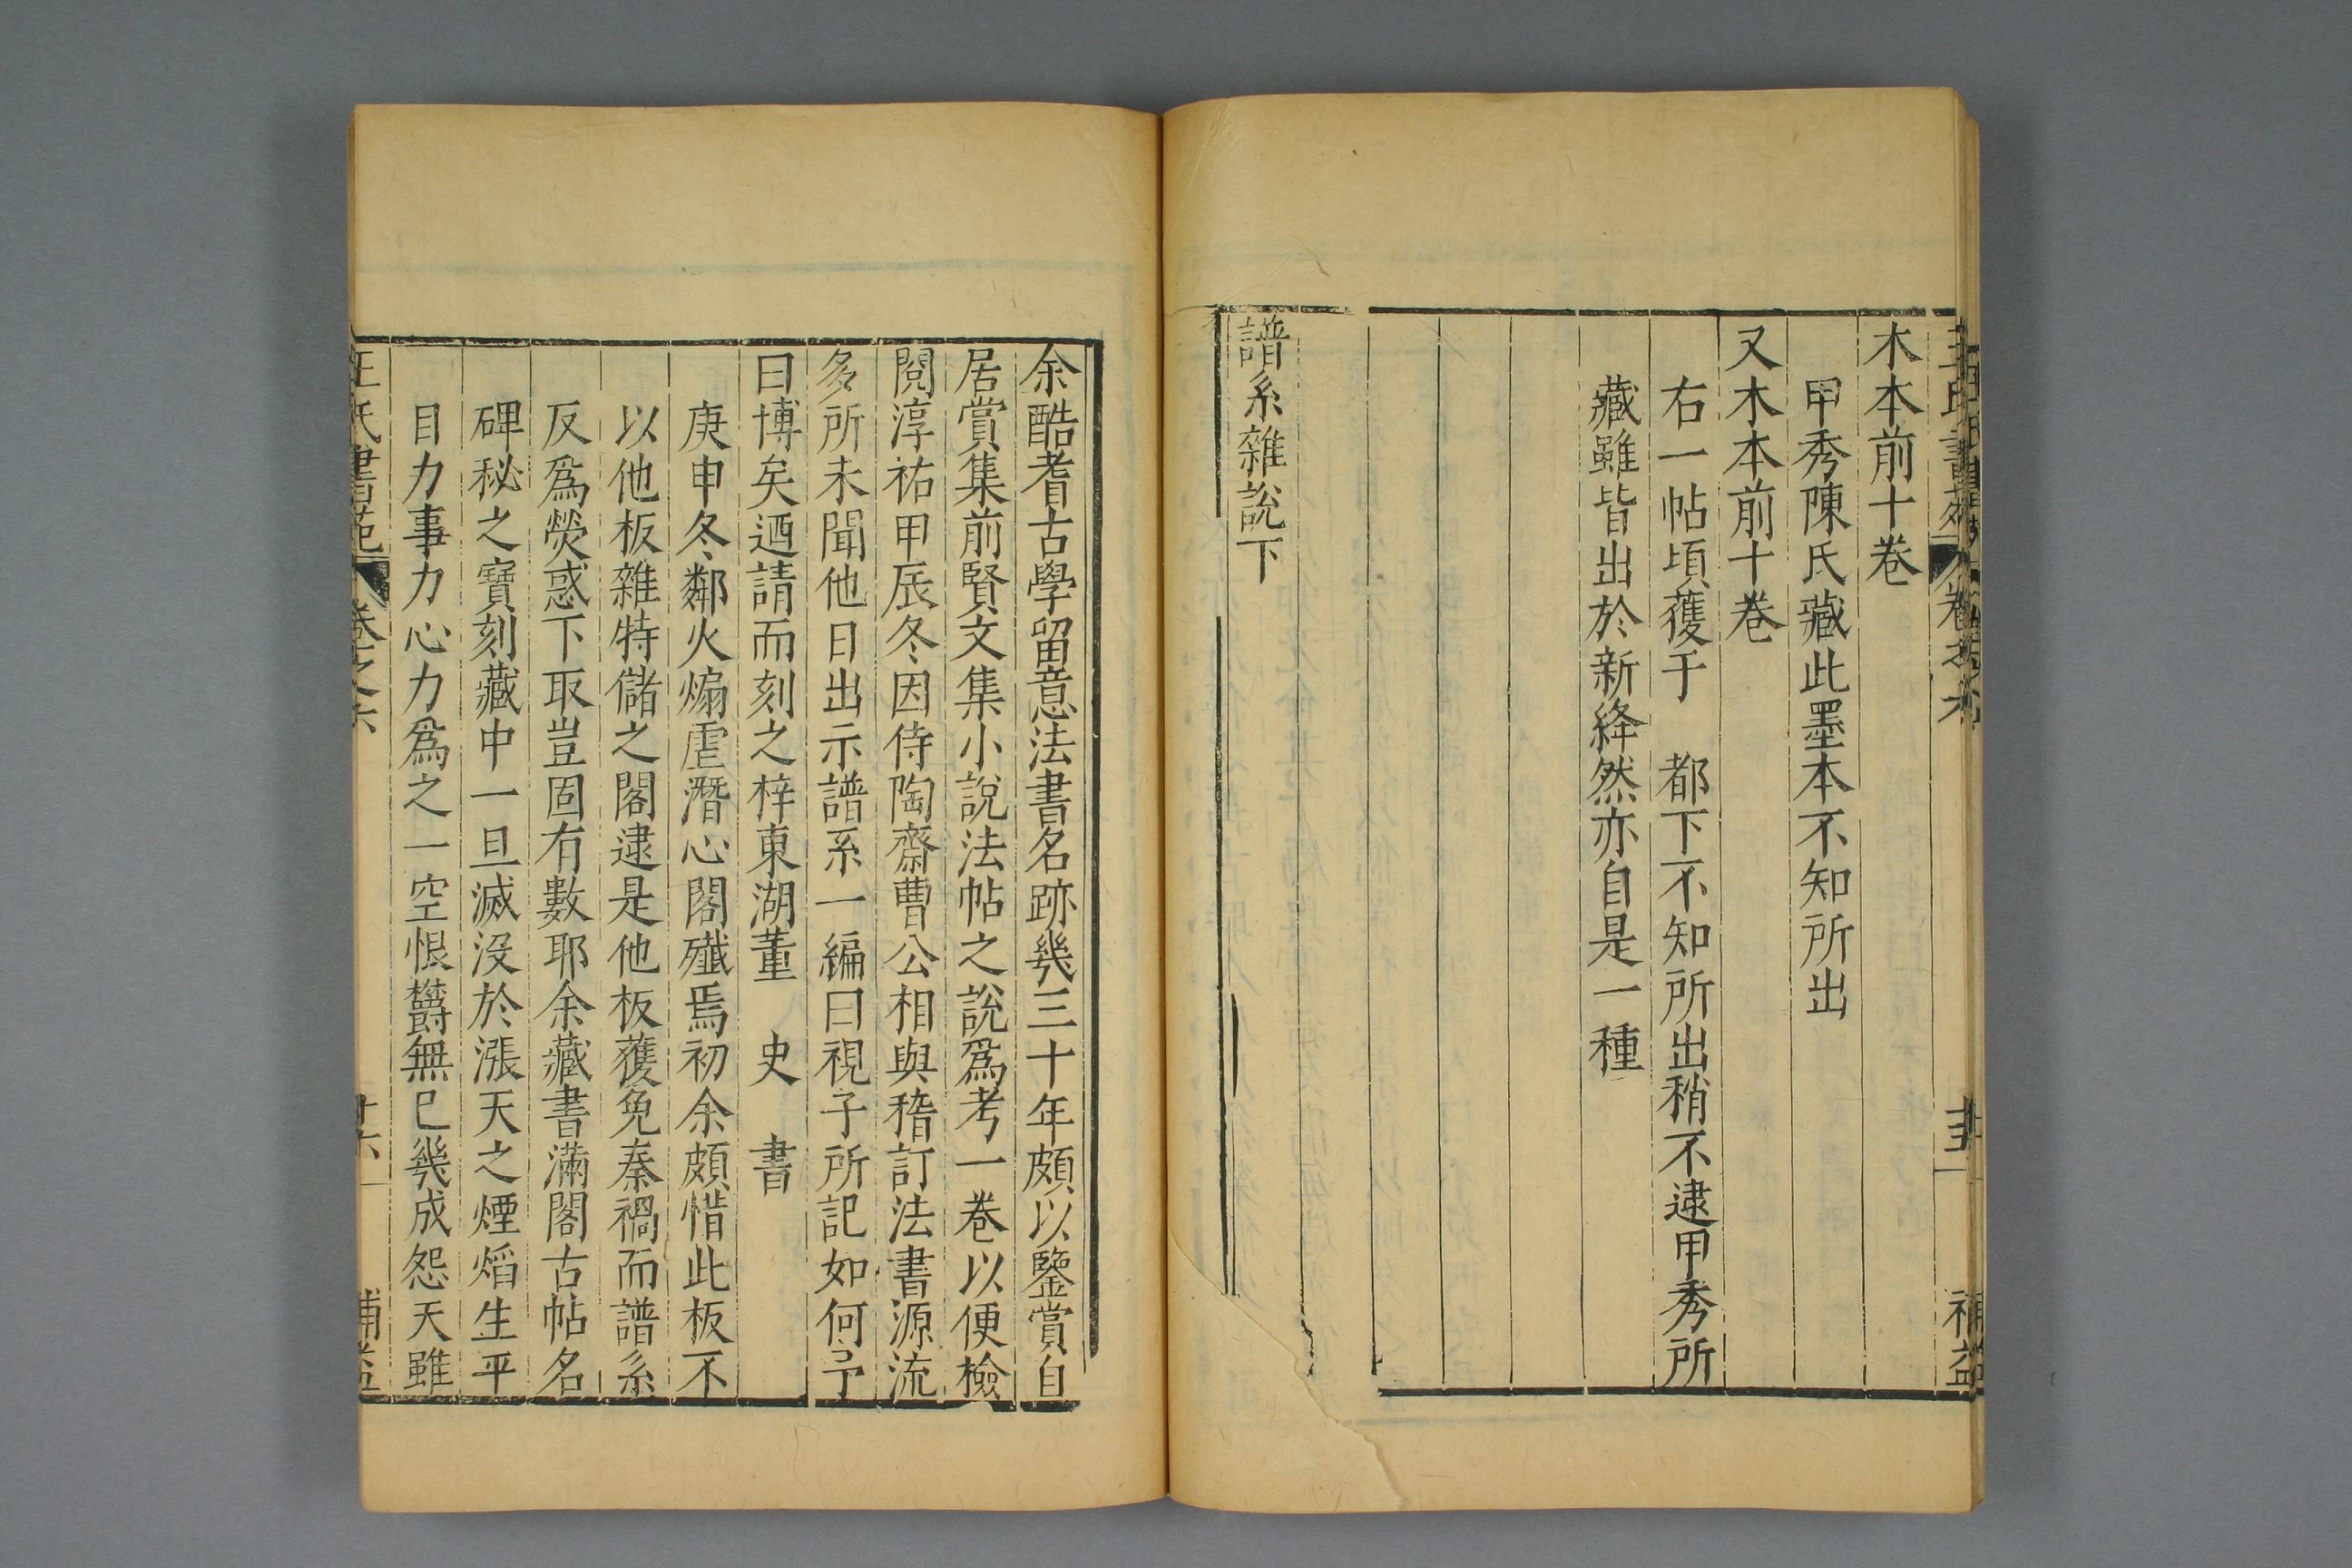 木本前十卷
甲秀陳氏藏此墨本不知所出
又木本前十卷
右一帖頃獲于　都下不知所出稍不逮甲秀所
藏雖皆出於新絳然亦自是一種
譜系雜說下
余酷耆古學留意法書名跡幾三十年頗以鑒賞自
居賞集前賢文集小說法帖之說爲考一卷以便檢
閱淳祐甲辰冬因侍陶齋曹公相與稽訂法書源流
多所未聞他日出示譜系一編曰視子所記如何予
曰博矣迺請而刻之梓東湖董　史　書
庚申冬鄰火煽虐潛心閣殱焉初余頗惜此板不
以他板雜特儲之閣逮是他板獲免秦禍而譜系
反爲熒惑下取豈固有數耶余藏書滿閣古帖名
碑秘之寶刻藏中一旦滅沒於漲天之煙熖生平
目力事力心力爲之一空恨欝無已幾成怨天雖
王氏書苑　卷之六　廿六　補益